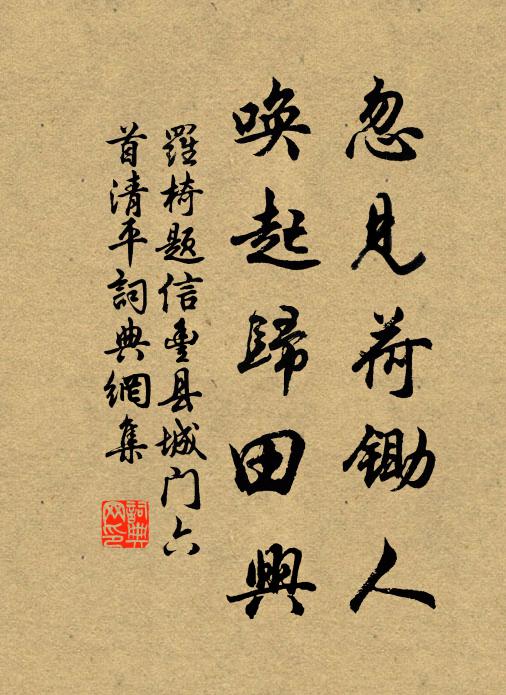 忽見荷鋤人
喚起歸田興
羅椅题信豊县城门六
首清平詞典網集
詞典
网印